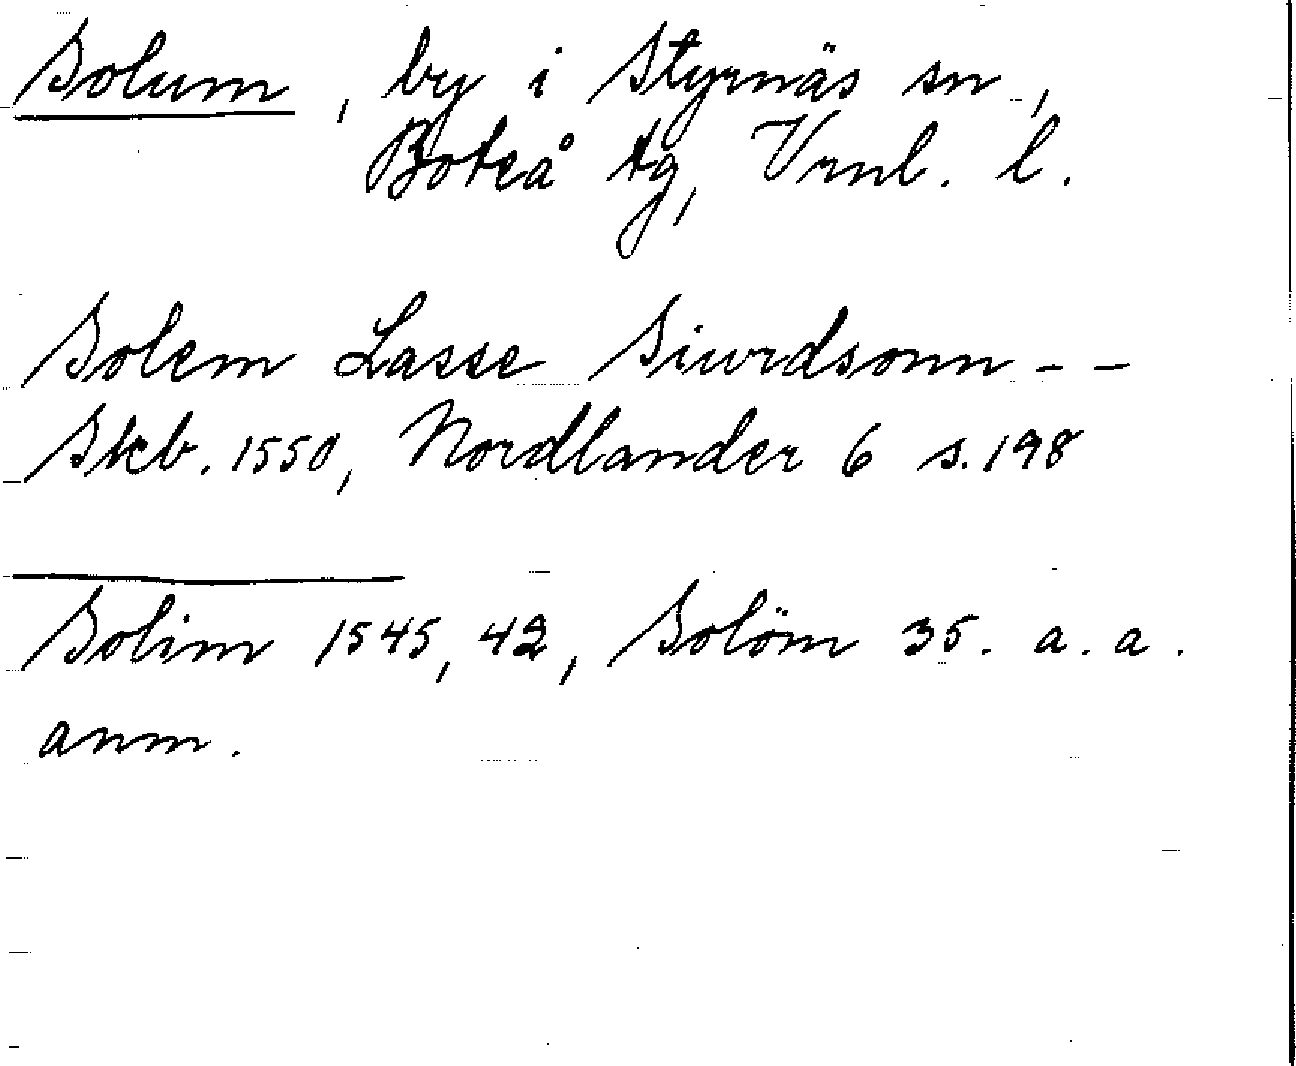 Solum, by i Styrnäs sn,
Boteå tg, Vrnl. l.
Solem Lasse Siurdsonn - -
Skb. 1550, Nordlander 6 s. 198
Solim 1545, 42, Solöm 35. a. a.
anm.